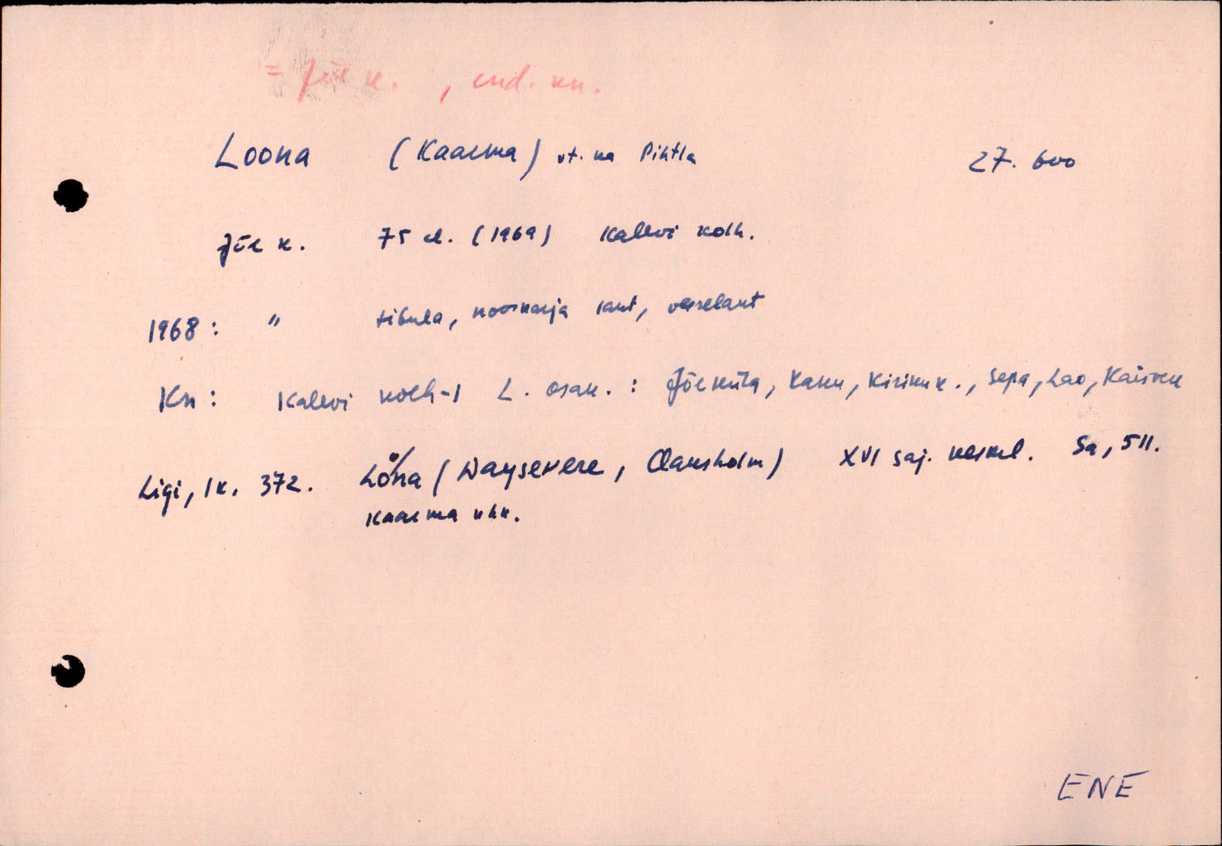 = Jõe k. , end. kn.
Loona (Kaarma) vt. ka Pihtla 27. 600
Jõe k. 75 el. (1969) Kalevi kolh.
1968: " sibula, noorkarja laut, vasselaut
Kn: Kalevi kolh-i L. osak.: Jõeküla, Kasu, Kiriku k., Sepa, Lao, Kaisvere
Ligi, lk. 372. Lona (Waysevere, Clawsholm) XVI saj. keskel. Sa, 511.
Kaarma khk.
ENE